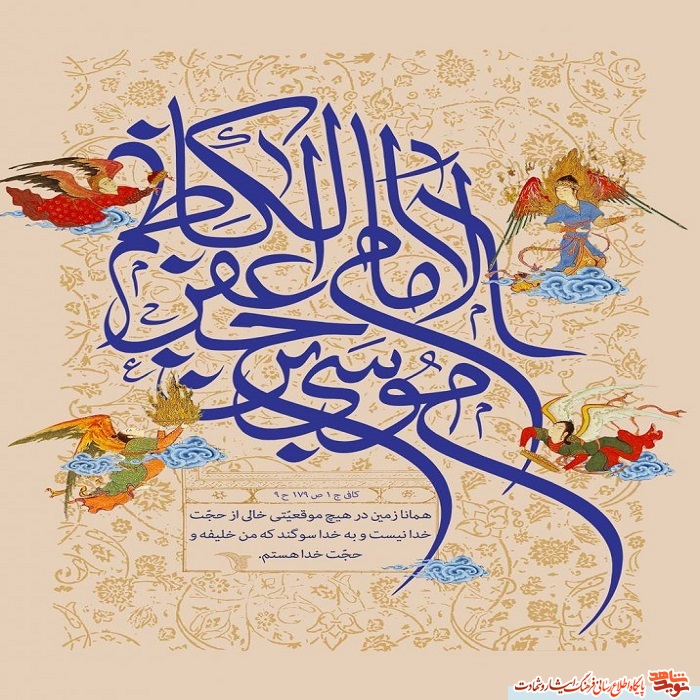 الإمام الكاظم
موسی بن جعفر
کافی ج ۱ ص ۱۷۹ ح ۹
همانا زمین در هیچ موقعیّتی خالی از حجّت
خدا نیست و به خدا سوگند که من خلیفه و
حجّت خدا هستم.
نوید شاهد
پایگاه اطلاع رسانی فرهنگ ایثار و شهادت